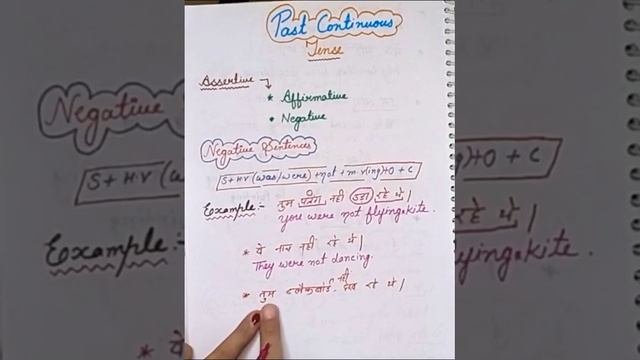 Past Continuous
Tense
Assertive →
* Affirmative
• Negative
Negative Sentences
S+H.V (was/were)+not+m.v(ing)+O+C
Example:- तुम पतंग नही उडा रहे थे।
You were not flying a kite.
* वे नाच नही रहे थे।
They were not dancing.
* तुम ब्लैकबोर्ड नही देख रहे थे।